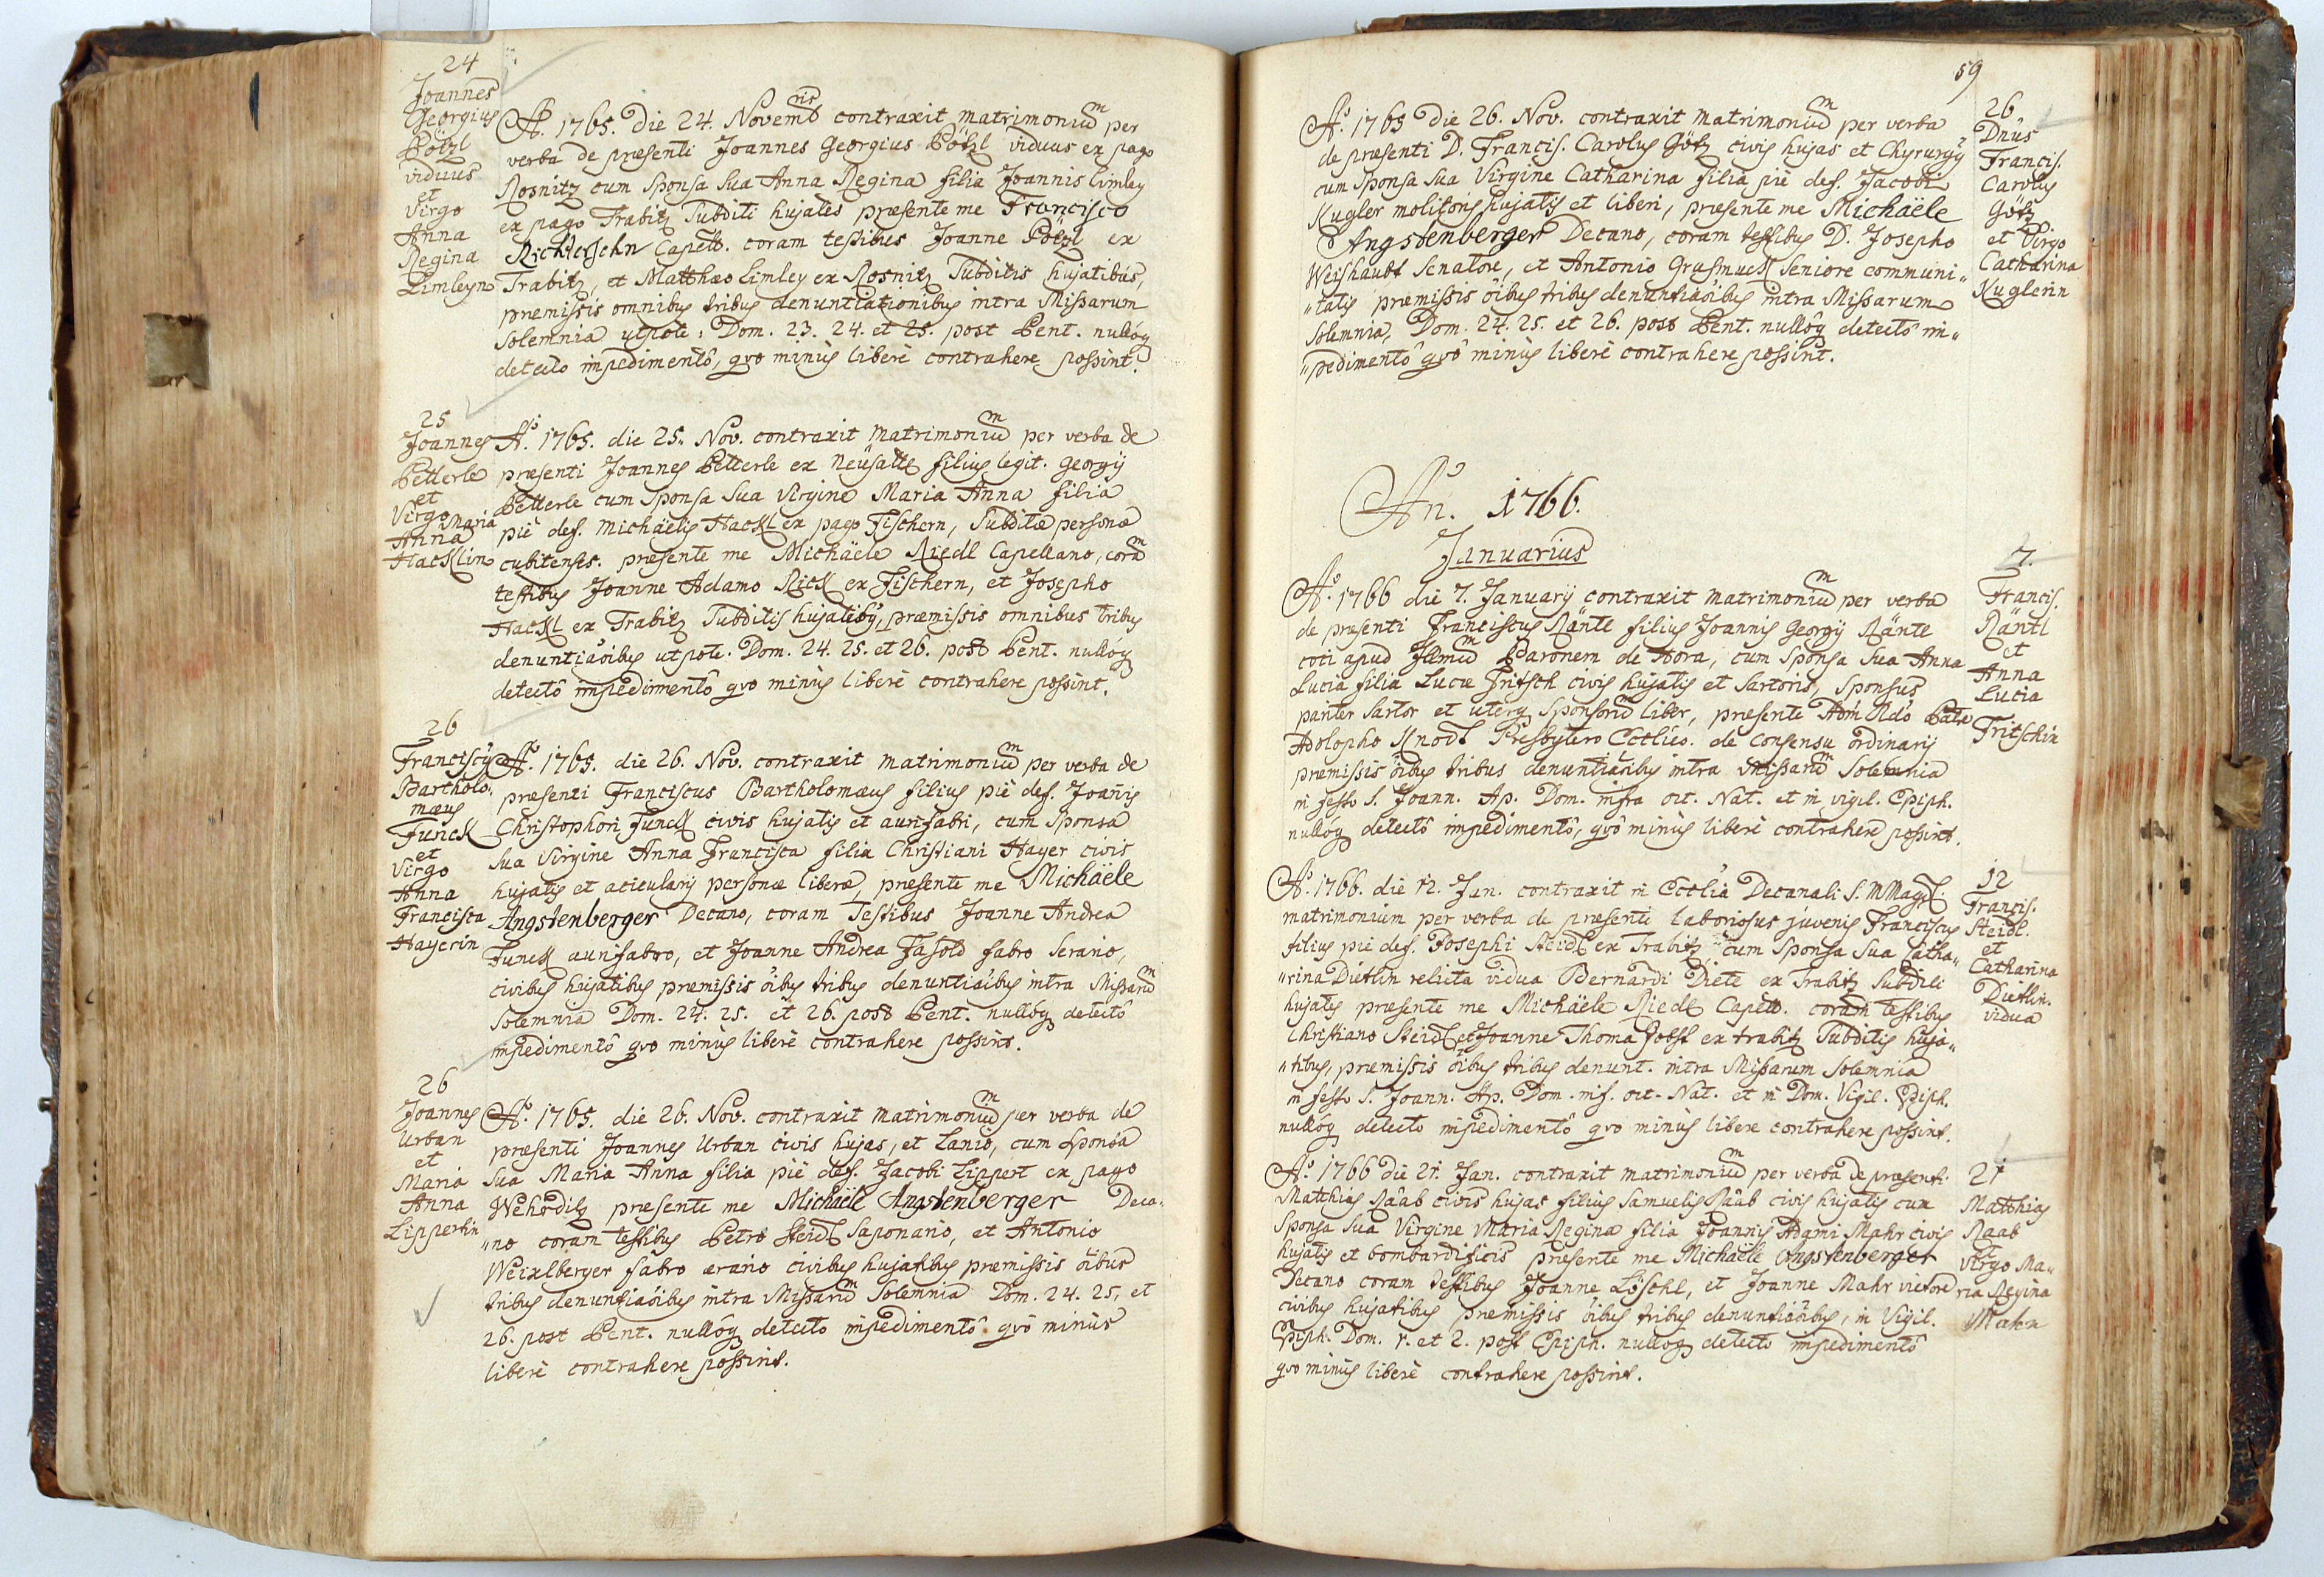 24
Joannes
Georgius
Pötzl
viduus
et
Virgo
Anna
Regina
Limleyn
Aō. 1765. die 24. Novembris contraxit matrimoniū per
verba de præsenti Joannes Georgius Pötzl viduus ex pago
Rosnitz cum Sponsa Sua Anna Regina filia Joannis Limley
ex pago Trabitz Subditi hujatis præsente me Francisco
Richtersohn Capell. coram testibus Joanne Pötzl ex
Trabitz, et Matthæo Limley ex Rosnitz Subditis hujatibus,
præmissis omnibus tribus denuntiationibus intra Missarum
Solemnia utpote: Dom. 23. 24. et 25. post Pent. nullóq
detecto impedimentô, qvo minùs liberè contrahere possint.
25
Joannes
Petterle
et
Virgo Maria
Anna
Hacklin
Aō. 1765. die 25. Nov. contraxit matrimoniū per verba de
præsenti Joannes Petterle ex Neüsattl filius legit. Georgÿ
Petterle cum Sponsa Sua Virgine Maria Anna filia
piè def. Michäelis Hackl ex pago Fischern, Subditæ personæ
cubitenses. præsente me Michäele Riedl Capellano, corā
testibus Joanne Adamo Rick ex Fischern, et Josepho
Hackl ex Trabitz Subditis hujatibus, præmissis omnibus tribus
denuntiaōibus utpote. Dom. 24. 25. et 26. post Pent. nullóq
detectô impedimentô qvo minùs liberè contrahere possint.
26
Franciscus
Bartholo-
mæus
Funck
et
Virgo
Anna
Francisca
Hayerin
Aō. 1765. die 26. Nov. contraxit matrimoniū per verba de
præsenti Franciscus Bartholomæus filius piè def. Joañis
Christophori Funck civis hujatis et aurifabri, cum Sponsa
Sua Virgine Anna Francisca filia Christiani Hayer civis
hujatis et acicularÿ personæ liberæ, præsente me Michäele
Angstenberger Decano, coram Testibus Joanne Andrea
Funck aurifabro, et Joanne Andrea Fasold fabro Serario,
civibus hujatibus præmissis ōibus tribus denuntiaōibus intra Missarū
Solemnia Dom. 24. 25. et 26. post Pent. nullóq detectô
impedimentô qvo minùs liberè contrahere possint.
26
Joannes
Urban
et
Maria
Anna
Lippertin
Aō. 1765. die 26. Nov. contraxit matrimoniū per verba de
præsenti Joannes Urban civis hujas, et Lanio, cum Sponsa
Sua Maria Anna filia piè def. Jacobi Lippert ex pago
Wehrditz præsente me Michäele Angstenberger Deca-
"no coram testibus Petro Steidl Saponario, et Antonio
Weixlberger fabro ærario civibus hujatibus præmissis ōibus
tribus denuntiaōibus intra Missarū Solemnia Dom. 24. 25. et
26. post Pent. nullóq detecto impedimentô qvô minùs
liberè contrahere possint.
59
Aō. 1765 die 26. Nov. contraxit matrimoniū per verba
de præsenti D. Francis. Carolus Götz civis hujas et Chyrurgÿ
cum Sponsa Sua Virgine Catharina filia piè def. Jacobi
Kugler molitoris hujatis et liberi, præsente me Michäele
Angstenberger Decano, coram testibus D. Josepho
Weishaubt Senatore, et Antonio Grusmuck Seniore communi-"
"tatis præmissis ōibus tribus denuntiaōibus intra Missarum
Solemnia, Dom. 24. 25. et 26. post Pent. nullôq detectô im-"
"pedimentô qvô minùs liberè contrahere possint.
26
Dnus
Francis.
Carolus
Götz
et Virgo
Catharina
Kuglerin
Añ. 1766.
Januarius
Aō. 1766 die 7. Januarÿ contraxit matrimoniū per verba
de præsenti Franciscus Räntl filius Joannis Georgÿ Räntl
coci apud Illmū Baronem de Hora, cum Sponsa Sua Anna
Lucia filia Lucæ Fritsch civis hujatis et Sartoris, Sponsus
pariter Sartor et uterq Sponsorū liber, præsente Adm Rdo Patre
Adolpho Knodt Presbytero Ecclīco. de consensu ordinarÿ
præmissis ōibus tribus denuntiaōibus intra Missarū Solemnia
in festo S. Joann. Ap. Dom. infra oct. Nat. et in vigil. Epiph.
nullóq detectô impedimentô, qvô minùs liberè contrahere possint.
7.
Francis.
Räntl
et
Anna
Lucia
Fritschin
Aō. 1766. die 12. Jan. contraxit in Ecclīa Decanali S. M Magd.
matrimonium per verba de præsenti laboriosus juvenis Franciscus
filius piè def. Josephi Steidl ex Trabitz cum Sponsa Sua Catha-"
"rina Dietlin relicta vidua Bernardi Dietl ex Trabitz Subditi
hujatis præsente me Michäele Riedl Capell. coram testibus
Christiano Steidl et Joanne Thoma Jobst ex trabitz Subditis huja-"
"tibus, præmissis ōibus tribus denunt. intra Missarum Solemnia
in festo S. Joann. Ap. Dom. inf. oct. Nat. et in Dom. Vigil. Epiph.
nullóq detecto impedimentô qvo minùs libere contrahere possint.
12
Francis.
Steidl.
et
Catharina
Dietlin.
vidua
Aō. 1766 die 21. Jan. contraxit matrimoniū per verba de præsenti
Matthias Raab civis hujas filius Samuelis Raab civis hujatis cum
Sponsa Sua Virgine Maria Regina filia Joannis Adami Mahr civis
hujatis et bombardificis præsente me Michäele Angstenberger
Decano coram testibus Joanne Löschl, et Joanne Mahr vietore
civibus hujatibus præmissis ōibus tribus denuntiaōibus, in Vigil.
Epiph. Dom. 1. et 2. post Epiph. nullóq detecto impedimentô
qvo minùs liberè contrahere possint.
21
Matthias
Raab
et
Virgo Ma-"
ria Regina
Mahrin